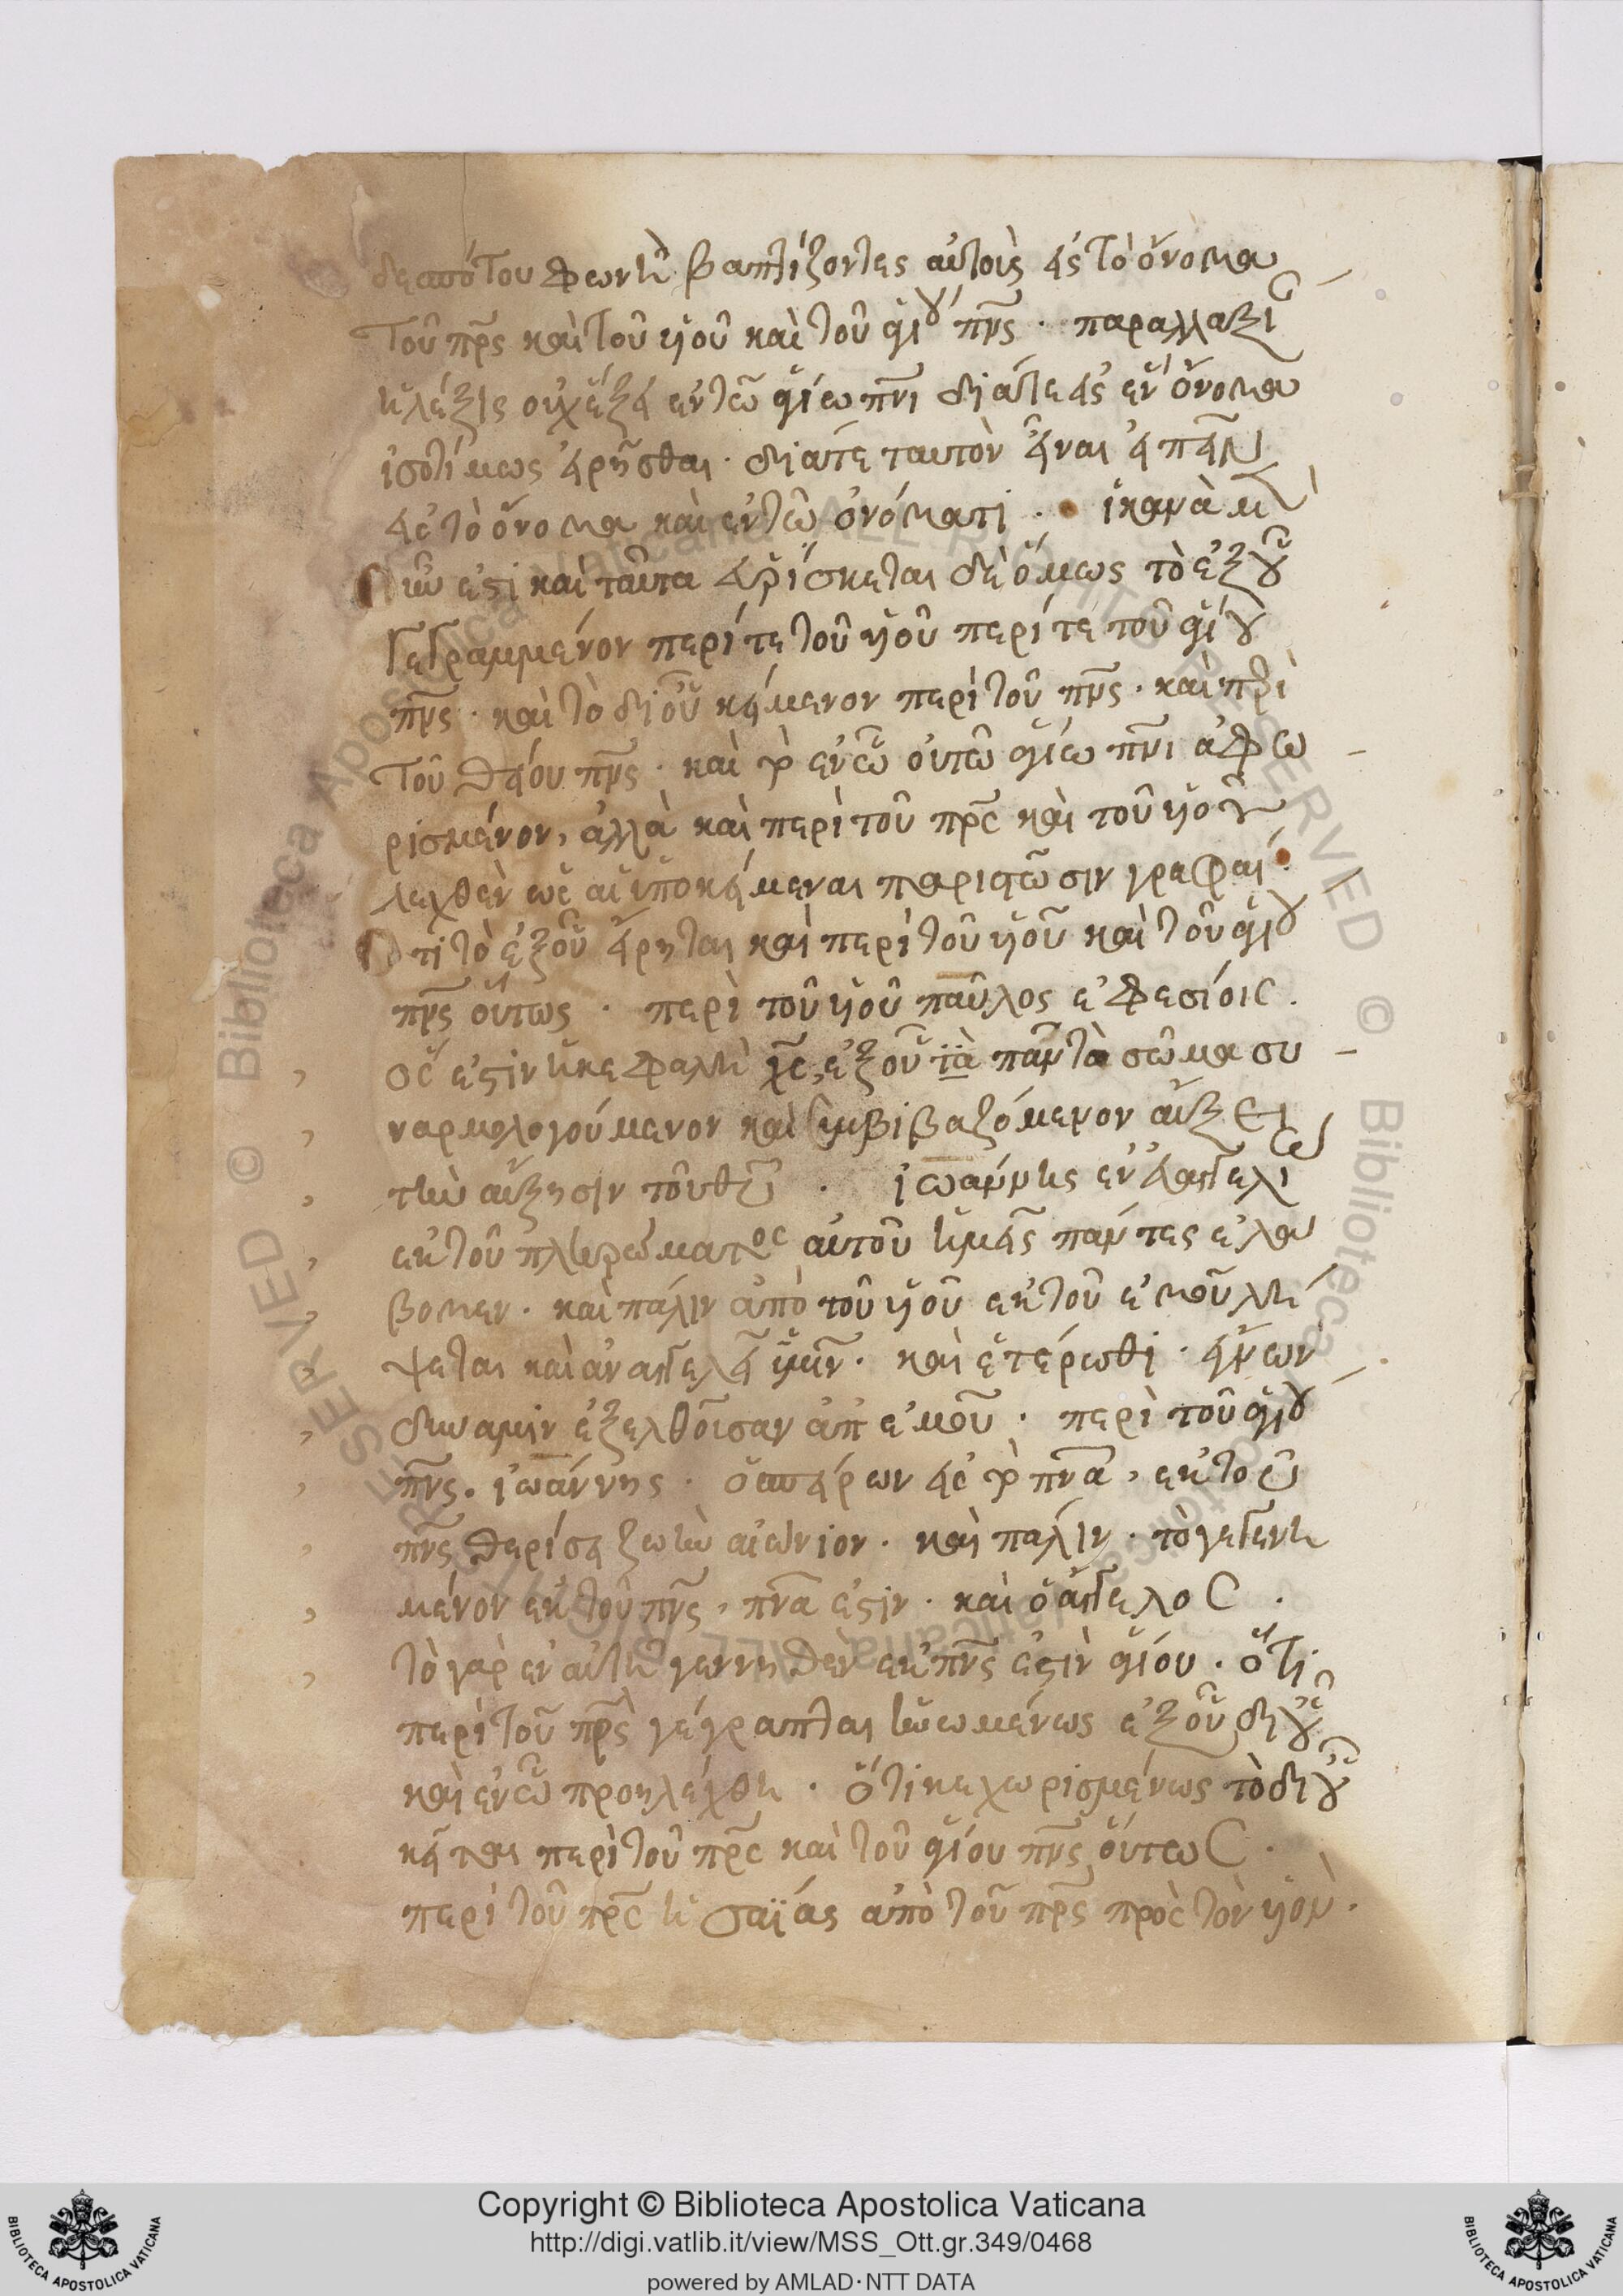 δεσπότου φωνὴ βαπτίζοντες αὐτοὺς εἰς τὸ ὄνομα
τοῦ πρς καὶ τοῦ υἱοῦ καὶ τοῦ ἁγίου πνς · παραλλαβι
ἡ λέξις οὐχ ἕξει ἐν τῶ ἁγίω πνι διάτε εἰς ἓν ὄνομα
ἰσοτίμως εἰρῆσθαι · διάτε ταυτὸν εἶναι εἰπεῖν
εἰς τὸ ὄνομα καὶ ἐν τῶ ὀνόματι · ἱκανὰ μὲν
οὖν ἐστι καὶ ταῦτα εὑρίσκεται δὲ ὅμως τὸ ἐξ οὗ
γεγραμμένον περί τε τοῦ υἱοῦ περί τε τοῦ ἁγίου
πνς · καὶ τὸ δι οὗ κείμενον περὶ τοῦ πρς · καὶ περὶ
τοῦ θείου πνς · καὶ τὸ ἐν ὧ οὐ τῶ ἁγίω πνι ἀφω
ρισμένον, ἀλλὰ καὶ περὶ τοῦ πρς καὶ τοῦ υἱοῦ
λεχθὲν ὡς αἱ ὑποκείμεναι παριστῶσιν γραφαί ·
Ὅτι τὸ ἐξ οὗ εἴρηται καὶ περὶ τοῦ υἱοῦ καὶ τοῦ ἁγίου
πνς οὕτως · περὶ τοῦ υἱοῦ παῦλος ἐφεσίοις ·
ὅς ἐστιν ἡ κεφαλὴ χς, ἐξ οὗ πᾶν τὸ σῶμα συ
ναρμολογούμενον καὶ συμβιβαζόμενον αὔξει
τὴν αὔξησιν τοῦ θυ · ἰωάννης ἐν εὐαγγελίω
ἐκ τοῦ πληρώματος αὐτοῦ ἡμεῖς πάντες ἐλά
βομεν · καὶ πάλιν ἀπὸ τοῦ υἱοῦ ἐκ τοῦ ἐμοῦ λή
ψεται καὶ ἀναγγελεῖ ὑμῖν · καὶ ἑτέρωθι · ἔγνων
δύναμιν ἐξελθοῦσαν ἀπ ἐμοῦ · περὶ τοῦ ἁγίου
πνς · ἰωάννης · ὁ σπείρων εἰς τὸ πνα, ἐκ τοῦ
πνς θερίσει ζωὴν αἰώνιον · καὶ πάλιν · τὸ γεγεννη
μένον ἐκ τοῦ πνς, πνα ἐστιν · καὶ ὁ ἄγγελος ·
τὸ γὰρ ἐν αὐτῆ γεννηθὲν ἐκ πνς ἐστὶν ἁγίου · ὅτι
περὶ τοῦ πρς γέγραπται ἡνωμένως ἐξ οὗ δι οὗ
καὶ ἐν ὧ προηλέχθη · ὅτι κεχωρισμένως τὸ δι οὗ
κεῖται περὶ τοῦ πρς καὶ τοῦ ἁγίου πνς οὕτως ·
περὶ τοῦ πρς ἡσαΐας ἀπὸ τοῦ πρς πρὸς τὸν υἱόν ·
Copyright © Biblioteca Apostolica Vaticana
http://digi.vatlib.it/view/MSS_Ott.gr.349/0468
powered by AMLAD·NTT DATA